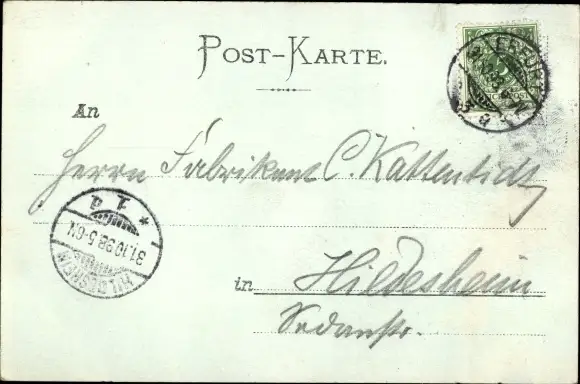 POST-KARTE.
ERFURT
An
Herrn Fabrikant C. Kattentidt
* 1. d.
31.10.98.5-6N
HILDESHEIM
in Hildesheim
Sedanstr.